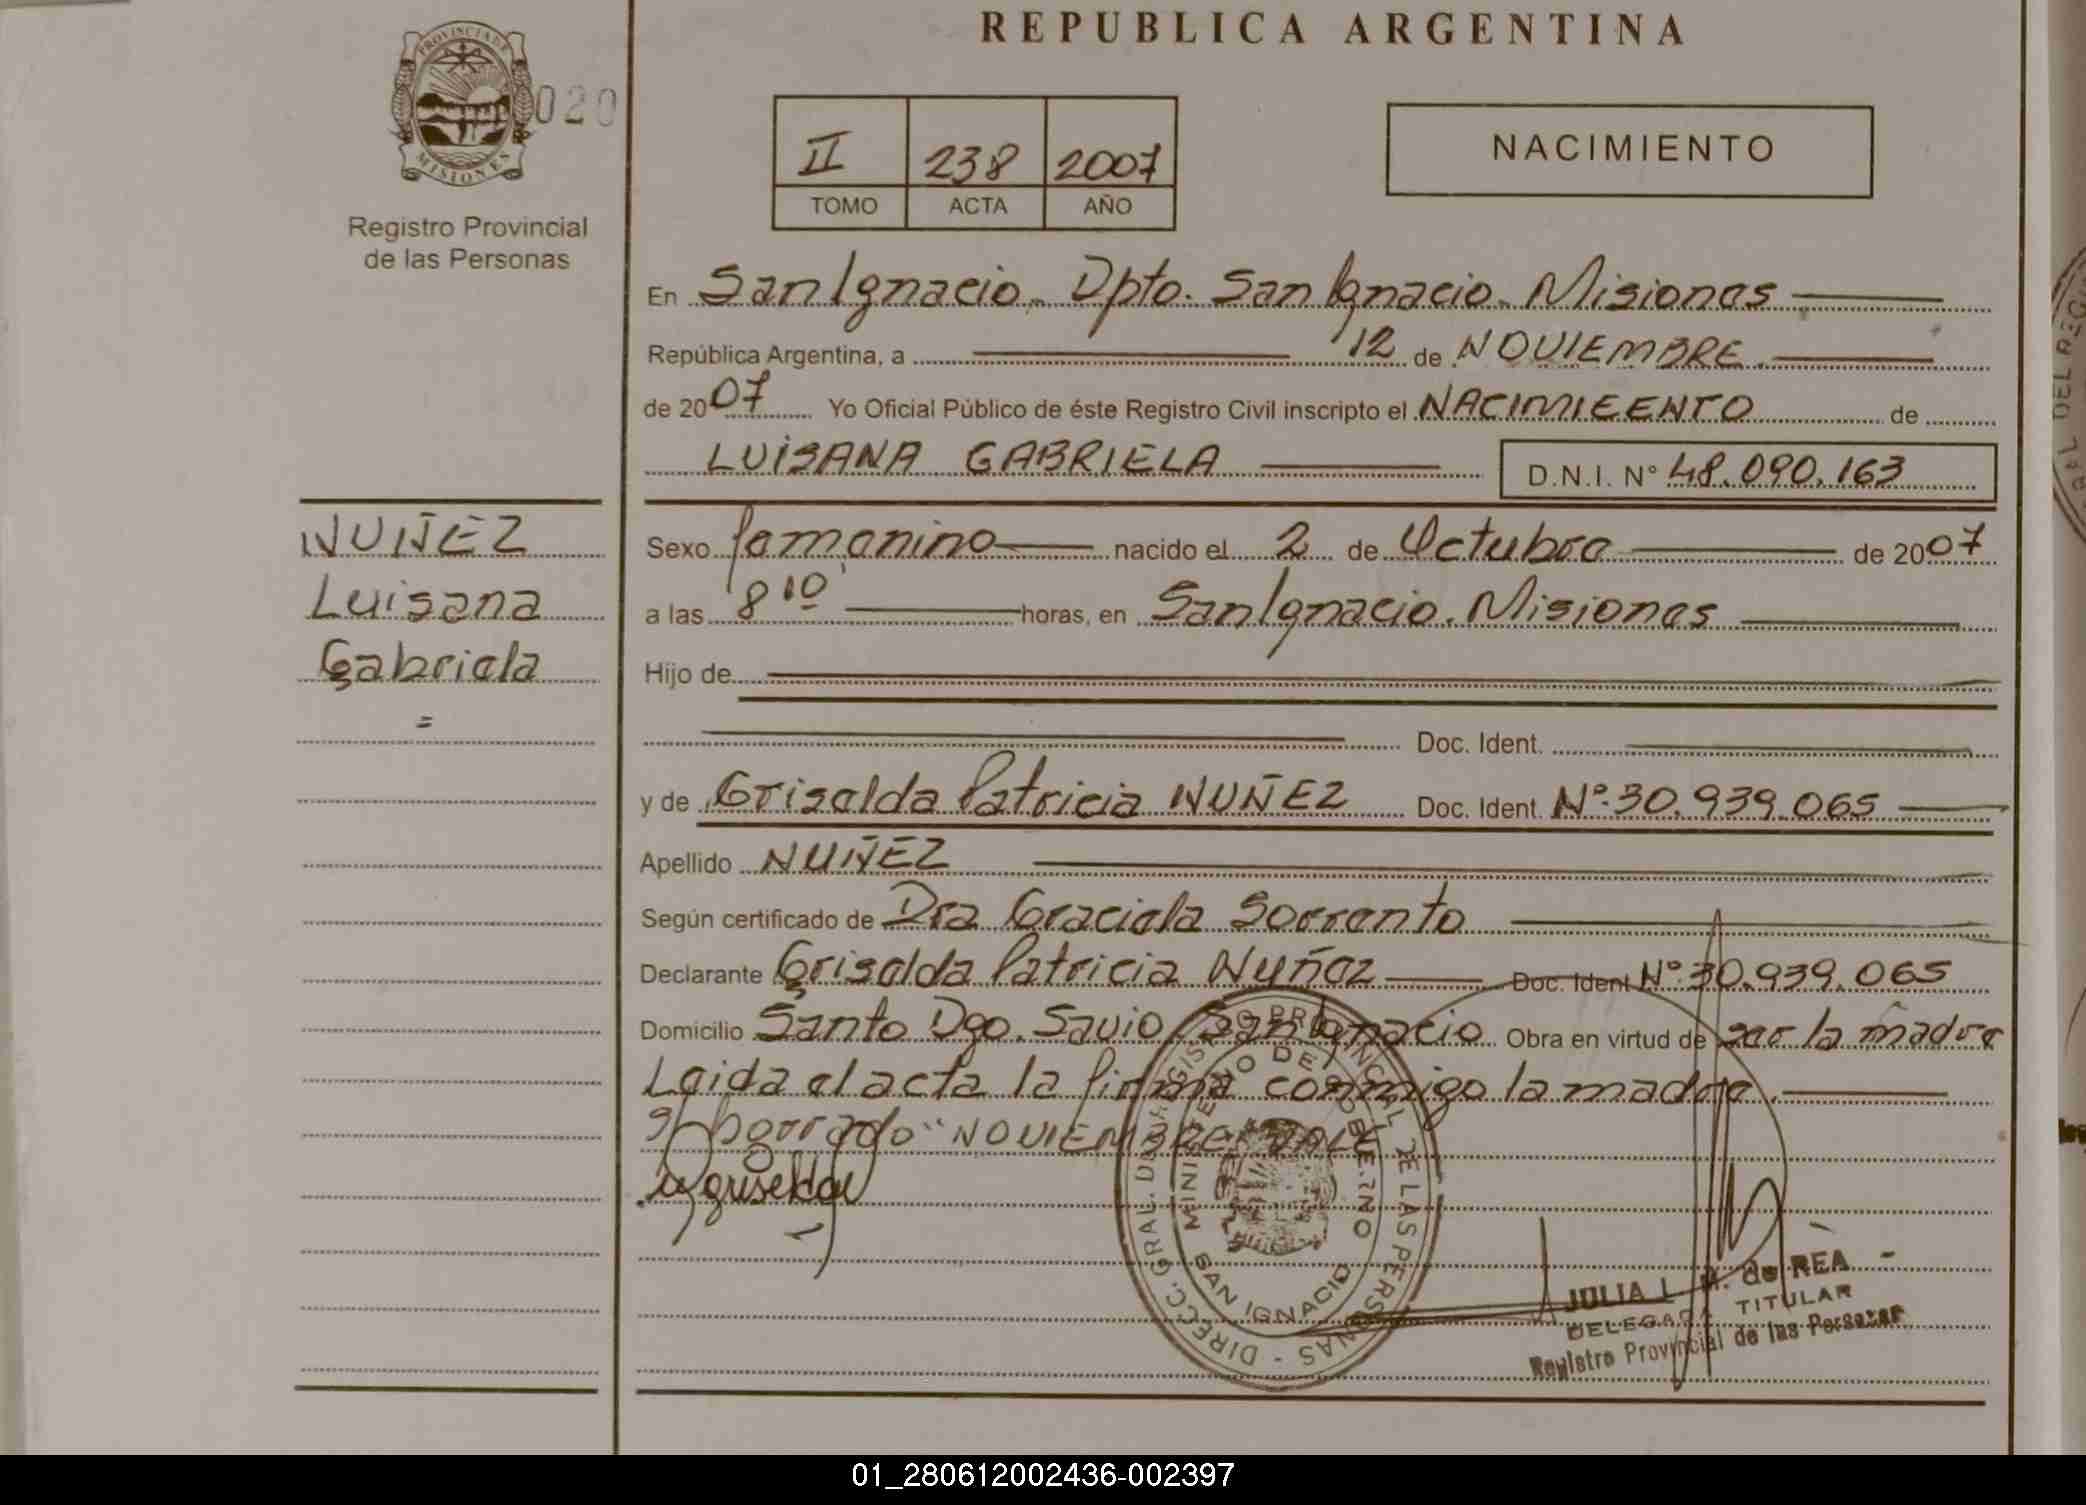 REPUBLICA ARGENTINA
PROVINCIA DE
MISIONES
020
Registro Provincial
de las Personas
II 238 2007
TOMO ACTA AÑO
NACIMIENTO
En San Ignacio. Dpto. San Ignacio. Misiones
República Argentina, a 12 de NOVIEMBRE.
de 2007 Yo Oficial Público de éste Registro Civil inscripto el NACIMIEENTO de
LUISANA GABRIELA D.N.I. N° 48.090.163
NUÑEZ
Luisana
Gabriela
=
Sexo femenino nacido el 2 de Octubre de 2007
a las 8 10 horas, en San Ignacio. Misiones
Hijo de
Doc. Ident.
y de Griselda Patricia NUÑEZ Doc. Ident. N°.30.939.065
Apellido NUÑEZ
Según certificado de Dra Graciela Sorrento
Declarante Griselda Patricia Nuñez Doc. Ident N°.30.939.065
Domicilio Santo Dgo. Savio San Ignacio Obra en virtud de ser la madre
Leida el acta la firma conmigo la madre.
borrado "NOVIEMBRE" VALE
DIRECC. GRAL. DEL REGISTRO PROVINCIAL DE LAS PERSONAS
MINISTERIO DE GOBIERNO
SAN IGNACIO
JULIA L. M. de REA
DELEGADA TITULAR
Registro Provincial de las Personas
01_280612002436-002397